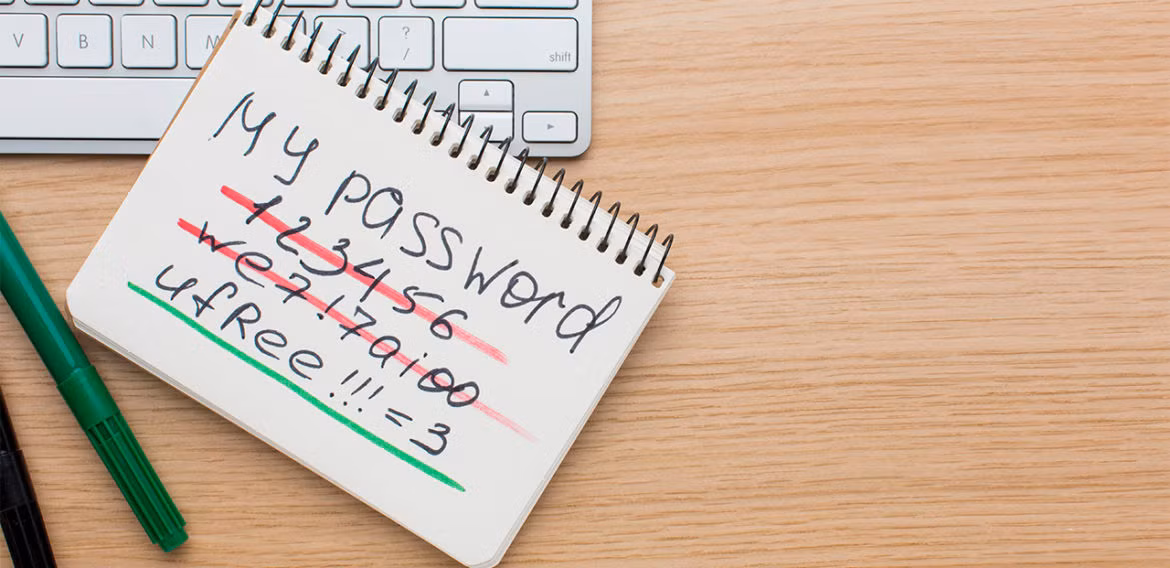 V B N M ? /
shift
My password
123456
we7!7aioo
ufRee!!!=3